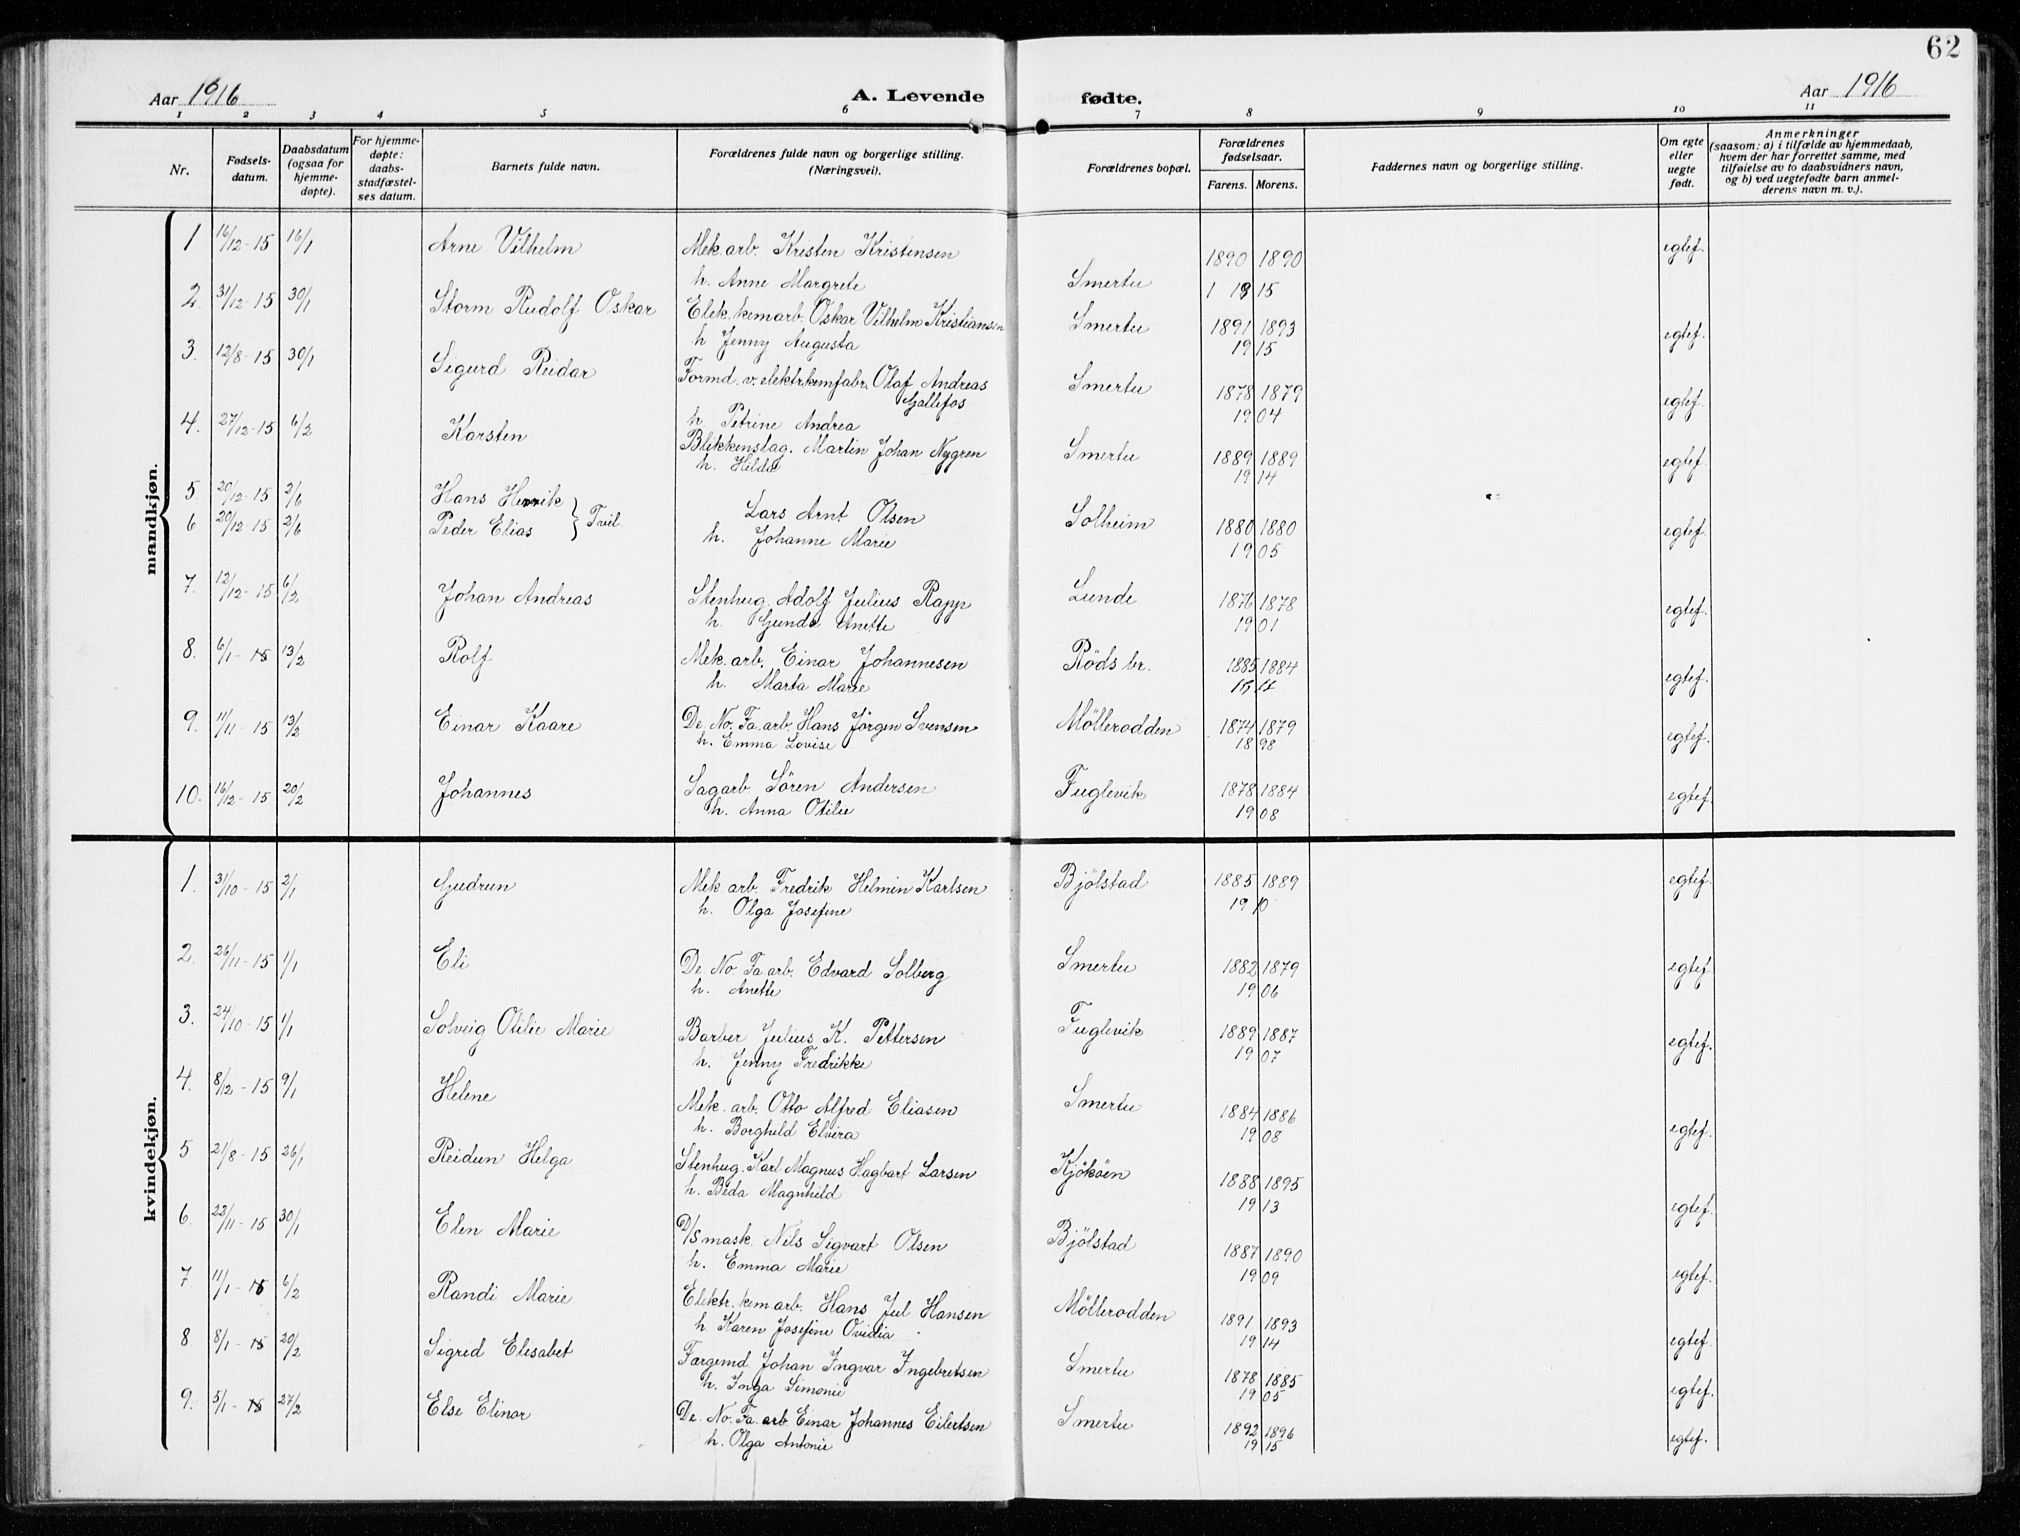 62
Aar 1916 A. Levende fødte. Aar 1916
1 2 3 4 5 6 7 8 9 10 11
Nr. Fødsels-datum. Daabsdatum (ogsaa for hjemme-døpte). For hjemme-døpte: daabs-stadfæstel-ses datum. Barnets fulde navn. Forældrenes fulde navn og borgerlige stilling. (Næringsvei). Forældrenes bopæl. Forældrenes fødselsaar. Farens. Morens. Faddernes navn og borgerlige stilling. Om egte eller uegte født. Anmerkninger (saasom: a) i tilfælde av hjemmedaab, hvem der har forrettet samme, med tilføielse av to daabsvidners navn, og b) ved uegtefødte barn anmel-derens navn m. v.).
mandkjøn.
1 16/12-15 16/1 Arne Vilhelm Mek. arb. Kristen Kristensen 1890 1890 egtef.
h. Anne Margrete Smertu 15
2. 31/12-15 30/1 Storm Rudolf Oskar Elek. kemarb. Oskar Vilhelm Kristiansen Smertu 1891 1893 egtef.
h Jenny Augusta 19 15
3. 12/8-15 30/1 Sigurd Reidar Formd. v. elektrkemfabr. Olaf Andreas Gallefos Smertu 1878 1879 egtef.
h Petrine Andrea 19 04
4. 27/12-15 6/2 Karsten Blikkenslag. Martin Johan Nygren Smertu 1889 1889 egtef.
h. Hilda 19 14
5. 20/12-15 2/6 Hans Henrik } Tvil Lars Arnt Olsen Solheim 1880 1880 egtef.
6 20/12-15 2/6 Peder Elias h. Johanne Marie 19 05
7. 12/12-15 6/2 Johan Andreas Stenhug. Adolf Julius Rapp Lunde 1876 1878 egtef.
h. Gunda Anette 19 01
8. 6/1- 13/2 Rolf Mek. arb. Einar Johannesen Röds br. 1885 1884 egtef.
h. Marta Marie
9. 11/11-15 13/2 Einar Kaare De. No. Fa. arb. Hans Jörgen Svensen Möllerodden 1874 1879 egtef.
h. Emma Lovise 18 98
10. 16/12-15 20/2 Johannes Sagarb. Sören Andersen Fuglevik 1878 1884 egtef.
h. Anna Otilie 19 08
kvindekjøn.
1. 31/10-15 2/1 Gudrun Mek. arb. Fredrik Helmin Karlsen Bjölstad 1885 1889 egtef.
h. Olga Josefine 19 10
2. 26/11-15 1/1 Eli De. No. Fa. arb. Edvard Solberg Smertu 1882 1879 egtef.
h. Anette 19 06
3. 24/10-15 1/1 Solveig Otilie Marie Barber Julius K. Pettersen Fuglevik 1889 1887 egtef.
h. Jenny Fredrikke 19 07
4. 8/12-15 9/1 Helene Mek. arb. Otto Alfred Eliasen Smertu 1884 1886 egtef.
h. Borghild Elvira 19 08
5 21/8-15 26/1 Reidun Helga Stenhug. Karl Magnus Hagbart Larsen Kjököen 1888 1895 egtef.
h. Beda Magnhild 19 13
6. 22/11-15 30/1 Elen Marie D/S mask. Nils Sigvart Olsen Bjölstad 1887 1890 egtef.
h. Emma Marie 19 09
7 11/1- 6/2 Randi Marie Elektr. kem arb. Hans Jul Hansen Möllerodden 1891 1893 egtef.
h. Karen Josefine Ovidia 19 14
8 8/1- 20/2 Sigrid Elisabet Fargemd. Johan Ingvar Ingebretsen Smertu 1878 1885 egtef.
h. Inga Simonie 19 05
9. 5/1- 27/2 Else Elinor De. No. Fa. arb. Einar Johannes Eilertsen Smertu 1892 1896 egtef.
h. Olga Antonie 19 15